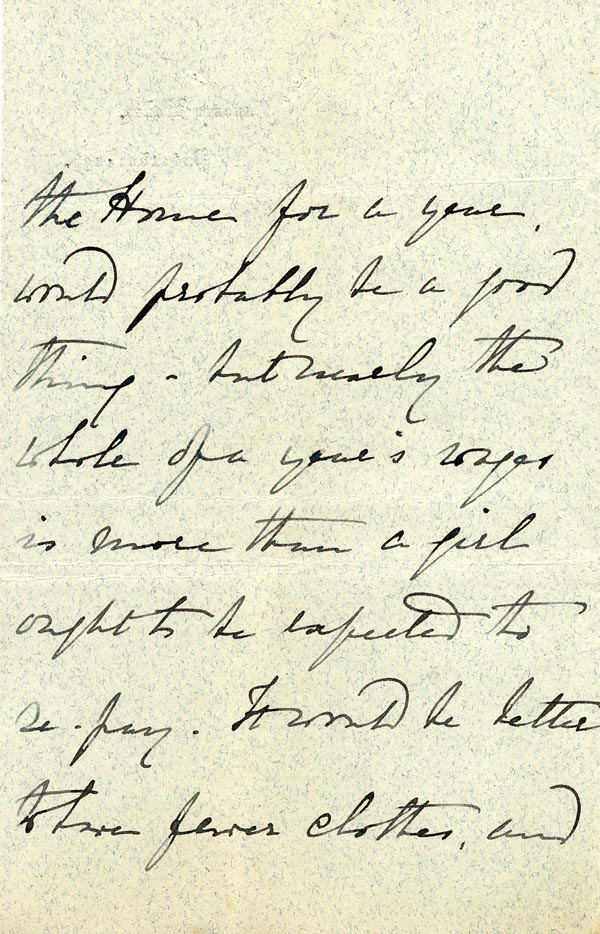 the Home for a year,
would probably be a good
thing - but nearly the
whole of a year's wages
is more than a girl
ought to be expected to
re-pay. It would be better
to have fewer clothes, and